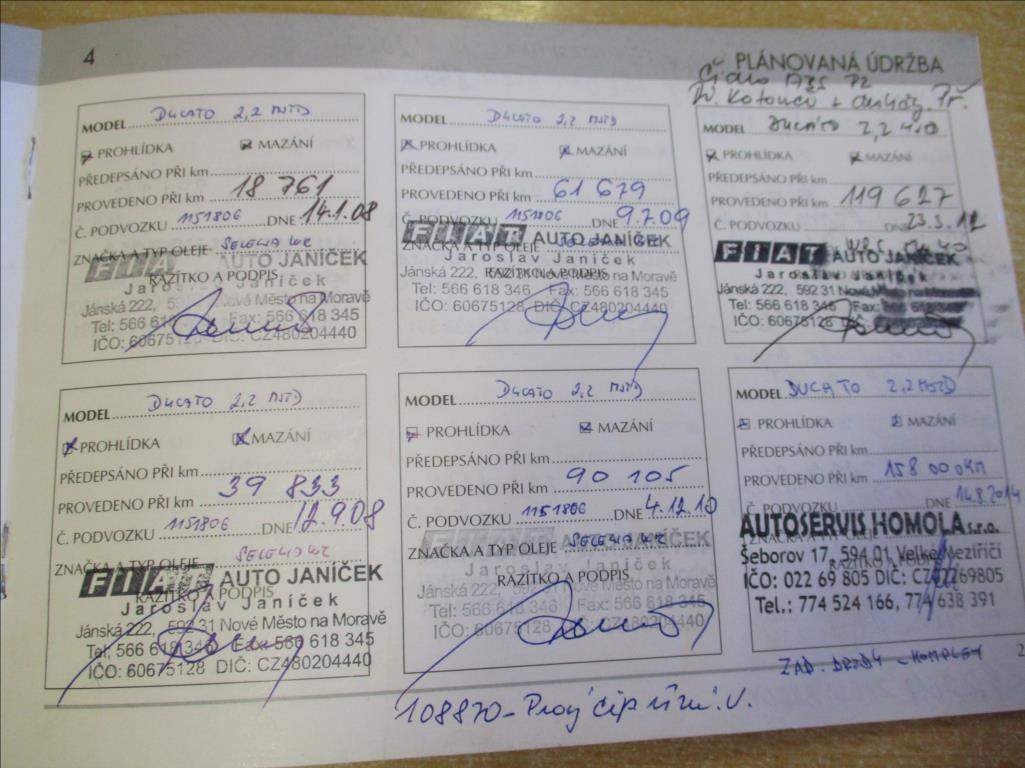 4
PLÁNOVANÁ ÚDRŽBA
MODEL DUCATO 2,2 MJTD
PROHLÍDKA MAZÁNÍ
PŘEDEPSÁNO PŘI km
PROVEDENO PŘI km 18 761
Č. PODVOZKU 1151806 DNE 14.1.08
ZNAČKA A TYP OLEJE SELENIA WR
FIAT AUTO JANÍČEK
RAZÍTKO A PODPIS
Jaroslav Janíček
Jánská 222, Nové Město na Moravě
Tel: 566 618 Fax: 566 618 345
IČO: 60675128 DIČ: CZ480204440
MODEL DUCATO 2,2 MJTD
PROHLÍDKA MAZÁNÍ
PŘEDEPSÁNO PŘI km
PROVEDENO PŘI km 61 679
Č. PODVOZKU 1151806 DNE 9.7.09
ZNAČKA A TYP OLEJE
FIAT AUTO JANÍČEK
Jaroslav Janíček
RAZÍTKO A PODPIS
Jánská 222, Nové Město na Moravě
Tel: 566 618 346 Fax: 566 618 345
IČO: 60675128 DIČ: CZ480204440
MODEL DUCATO 2,2 MJTD
PROHLÍDKA MAZÁNÍ
PŘEDEPSÁNO PŘI km
PROVEDENO PŘI km 119 627
Č. PODVOZKU 23.3.12
FIAT AUTO JANÍČEK
Jaroslav Janíček
Jánská 222, 592 31 Nové Město na Moravě
Tel: 566 618 346 Fax:
IČO: 60675128 DIČ
MODEL DUCATO 2,2 MJTD
PROHLÍDKA MAZÁNÍ
PŘEDEPSÁNO PŘI km
PROVEDENO PŘI km 39 833
Č. PODVOZKU 1151806 DNE 12.9.08
ZNAČKA A TYP OLEJE SELENIA WR
FIAT AUTO JANÍČEK
RAZÍTKO A PODPIS
Jaroslav Janíček
Jánská 222, 592 31 Nové Město na Moravě
Tel: 566 618 346 Fax: 566 618 345
IČO: 60675128 DIČ: CZ480204440
MODEL DUCATO 2,2 MJTD
PROHLÍDKA MAZÁNÍ
PŘEDEPSÁNO PŘI km
PROVEDENO PŘI km 90 105
Č. PODVOZKU 1151806 DNE 4.12.10
ZNAČKA A TYP OLEJE SELENIA WR
FIAT AUTO JANÍČEK
Jaroslav Janíček
RAZÍTKO A PODPIS
Jánská 222, 592 31 Nové Město na Moravě
Tel: 566 618 346 Fax: 566 618 345
IČO: 60675128 DIČ: CZ480204440
MODEL DUCATO 2,2 MJTD
PROHLÍDKA MAZÁNÍ
PŘEDEPSÁNO PŘI km
PROVEDENO PŘI km 158 000 KM
Č. PODVOZKU DNE 14.8.2014
AUTOSERVIS HOMOLA s.r.o.
Šeborov 17, 594 01 Velké Meziříčí
IČO: 022 69 805 DIČ: CZ02269805
Tel.: 774 524 166, 774 638 391
ZAD. BRZDY - KOMPLET
108870